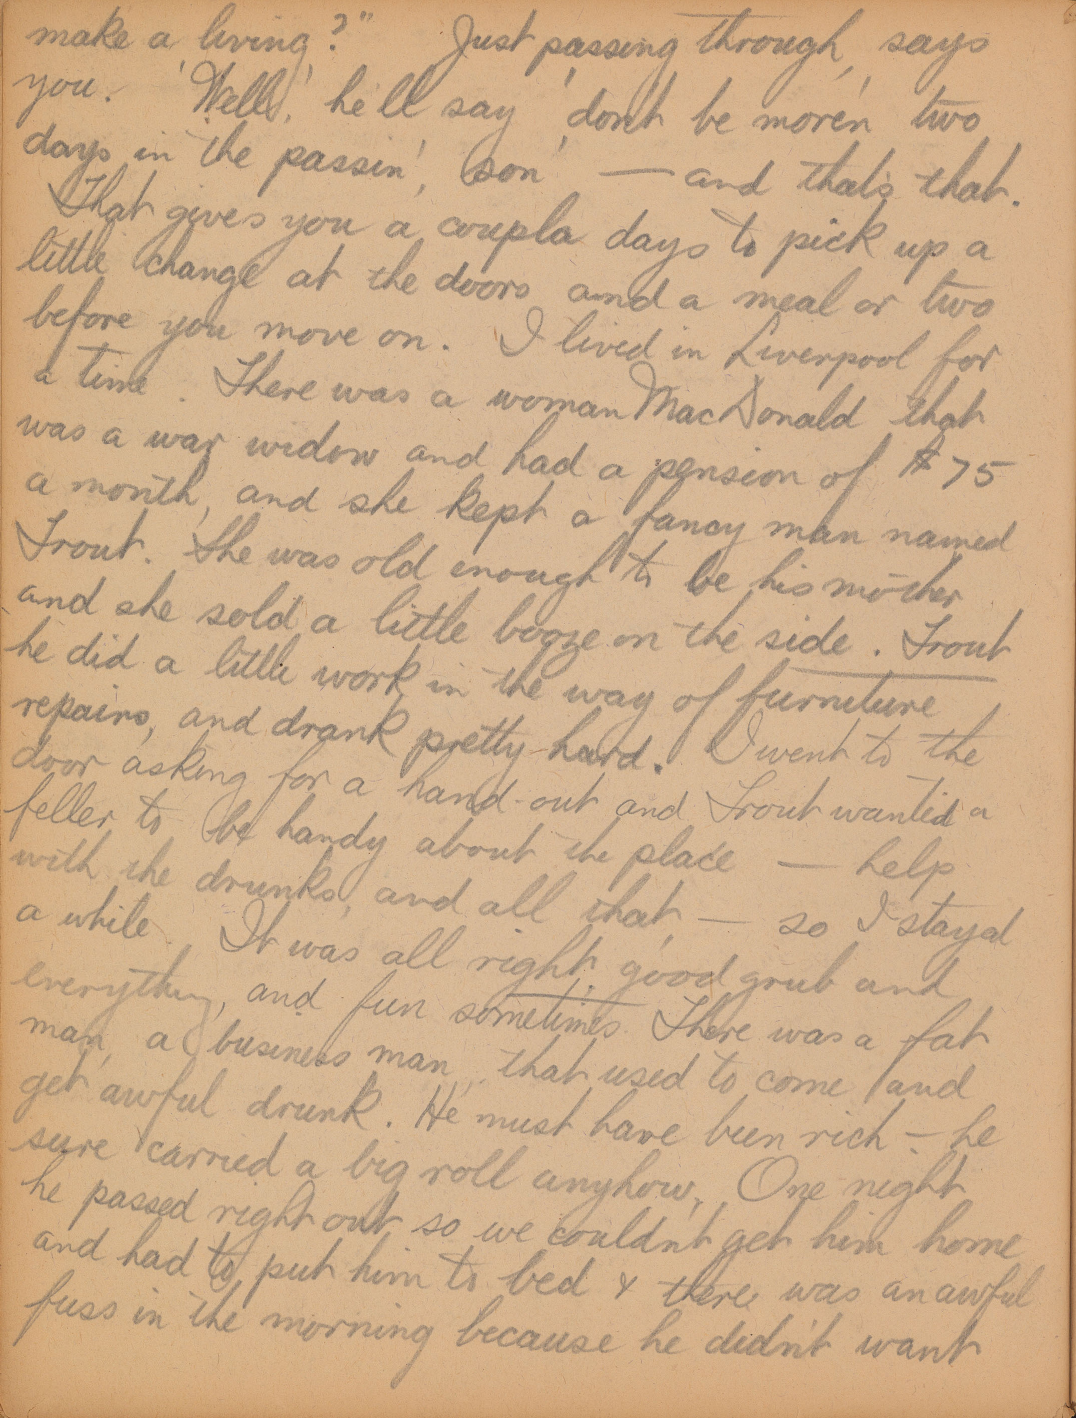 make a living?" 'Just passing through,' says
you. 'Well,' he'll say 'don't be more'n two
days in the passin', son' — and that's that.
That gives you a coupla days to pick up a
little change at the doors and a meal or two
before you move on. I lived in Liverpool for
a time. There was a woman MacDonald that
was a war widow and had a pension of $75
a month, and she kept a fancy man named
Trout. She was old enough to be his mother
and she sold a little booze on the side. Trout
he did a little work in the way of furniture
repairs, and drank pretty hard. I went to the
door asking for a hand-out and Trout wanted a
feller to be handy about the place — help
with the drunks, and all that, — so I stayed
a while. It was all right, good grub and
everything, and fun sometimes. There was a fat
man, a business man, that used to come and
get awful drunk. He must have been rich — he
sure carried a big roll anyhow. One night
he passed right out so we couldn't get him home
and had to put him to bed & there was an awful
fuss in the morning because he didn't want